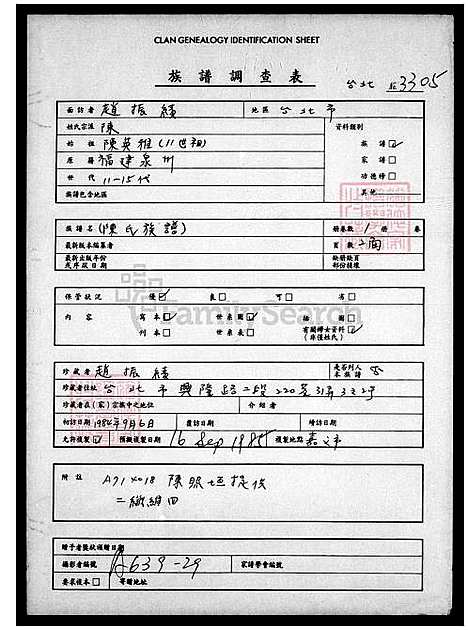 CLAN GENEALOGY IDENTIFICATION SHEET
族譜調查表
台北 3305
面訪者 趙振績 地區 台北市
姓氏宗派 陳 資料類別
始祖 陳英雅(11世祖) 族譜
原籍 福建泉州 家譜
世代 11-15代 功德榜
族譜包含地區 其他
族譜名 (陳氏族譜) 冊卷數 1 冊 卷
最新版本編纂者 頁數
最新出版年份 缺冊缺頁
或序跋日期 部份積壞
保管狀況 優 良 可 劣
內容 寫本 世系圖 插圖
刊本 世系表 有關婦女資料
(非僅姓氏)
珍藏者 趙振績 是否列入本族譜 否
珍藏者住址 台北市興隆路二段220巷
珍藏者在(家)宗族中之地位 介紹者
初訪日期 1984年9月6日 覆訪日期 續訪日期
允許複製 預擬複製日期 16 Sep 1985 複製地點 嘉義市
附註 A714018 陳照
贈予者獎狀頒贈日期
攝影者編號 639-29 家譜學會編號
要求複本 寄贈地址
FamilySearch